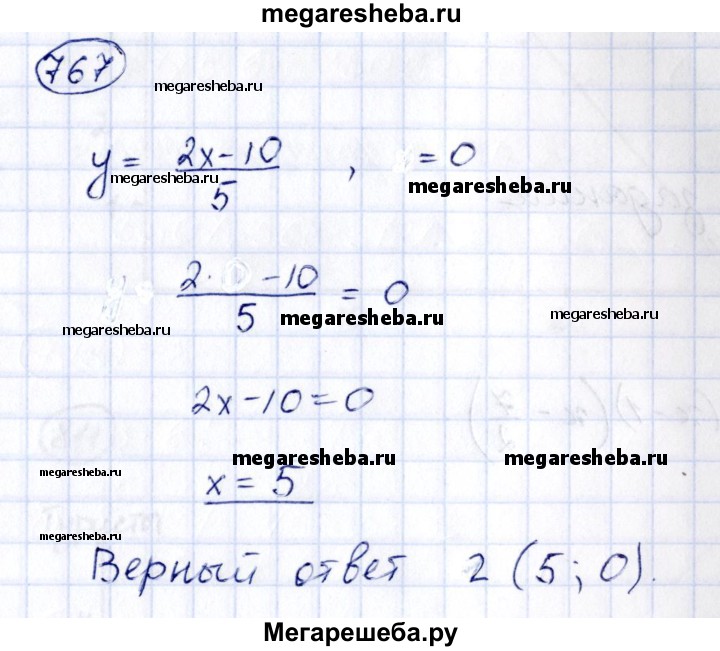 megaresheba.ru
767
megaresheba.ru
y = (2x - 10)/5 , = 0
megaresheba.ru
megaresheba.ru
(2· - 10)/5 = 0
megaresheba.ru
megaresheba.ru
2x - 10 = 0
megaresheba.ru
megaresheba.ru
megaresheba.ru
x = 5
megaresheba.ru
Верный ответ 2 (5; 0).
Мегарешеба.ру